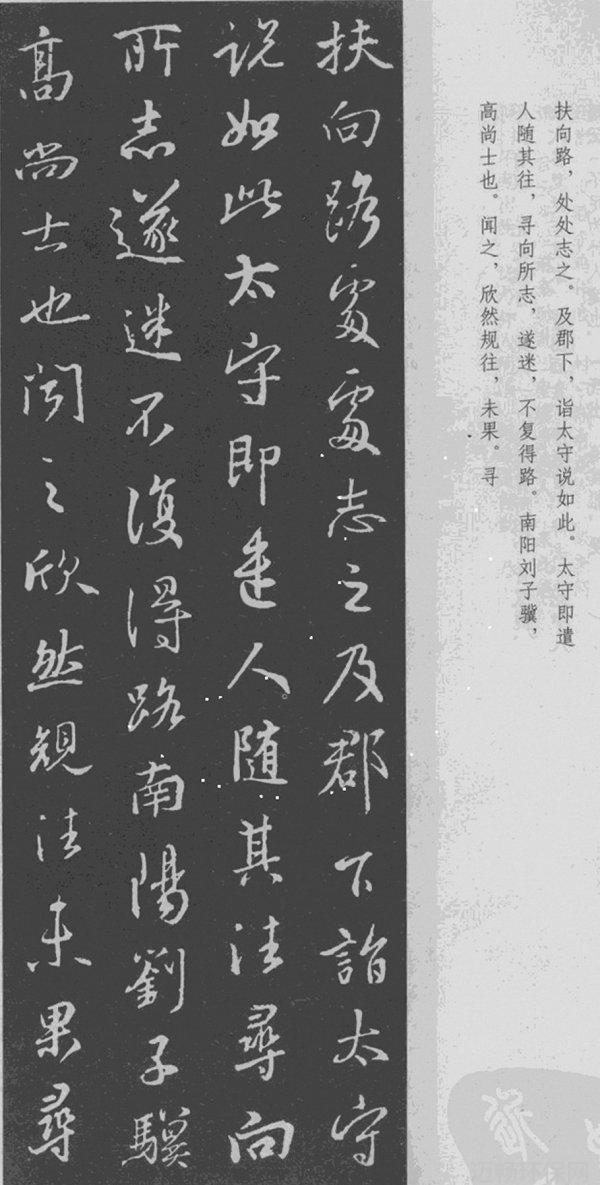 扶向路處處志之及郡下詣太守
说如此太守即遣人随其往尋向
所志遂迷不復得路南陽劉子驥
高尚士也闻之欣然規往未果尋
扶向路，处处志之。及郡下，诣太守说如此。太守即遣
人随其往，寻向所志，遂迷，不复得路。南阳刘子骥，
高尚士也。闻之，欣然规往，未果。寻